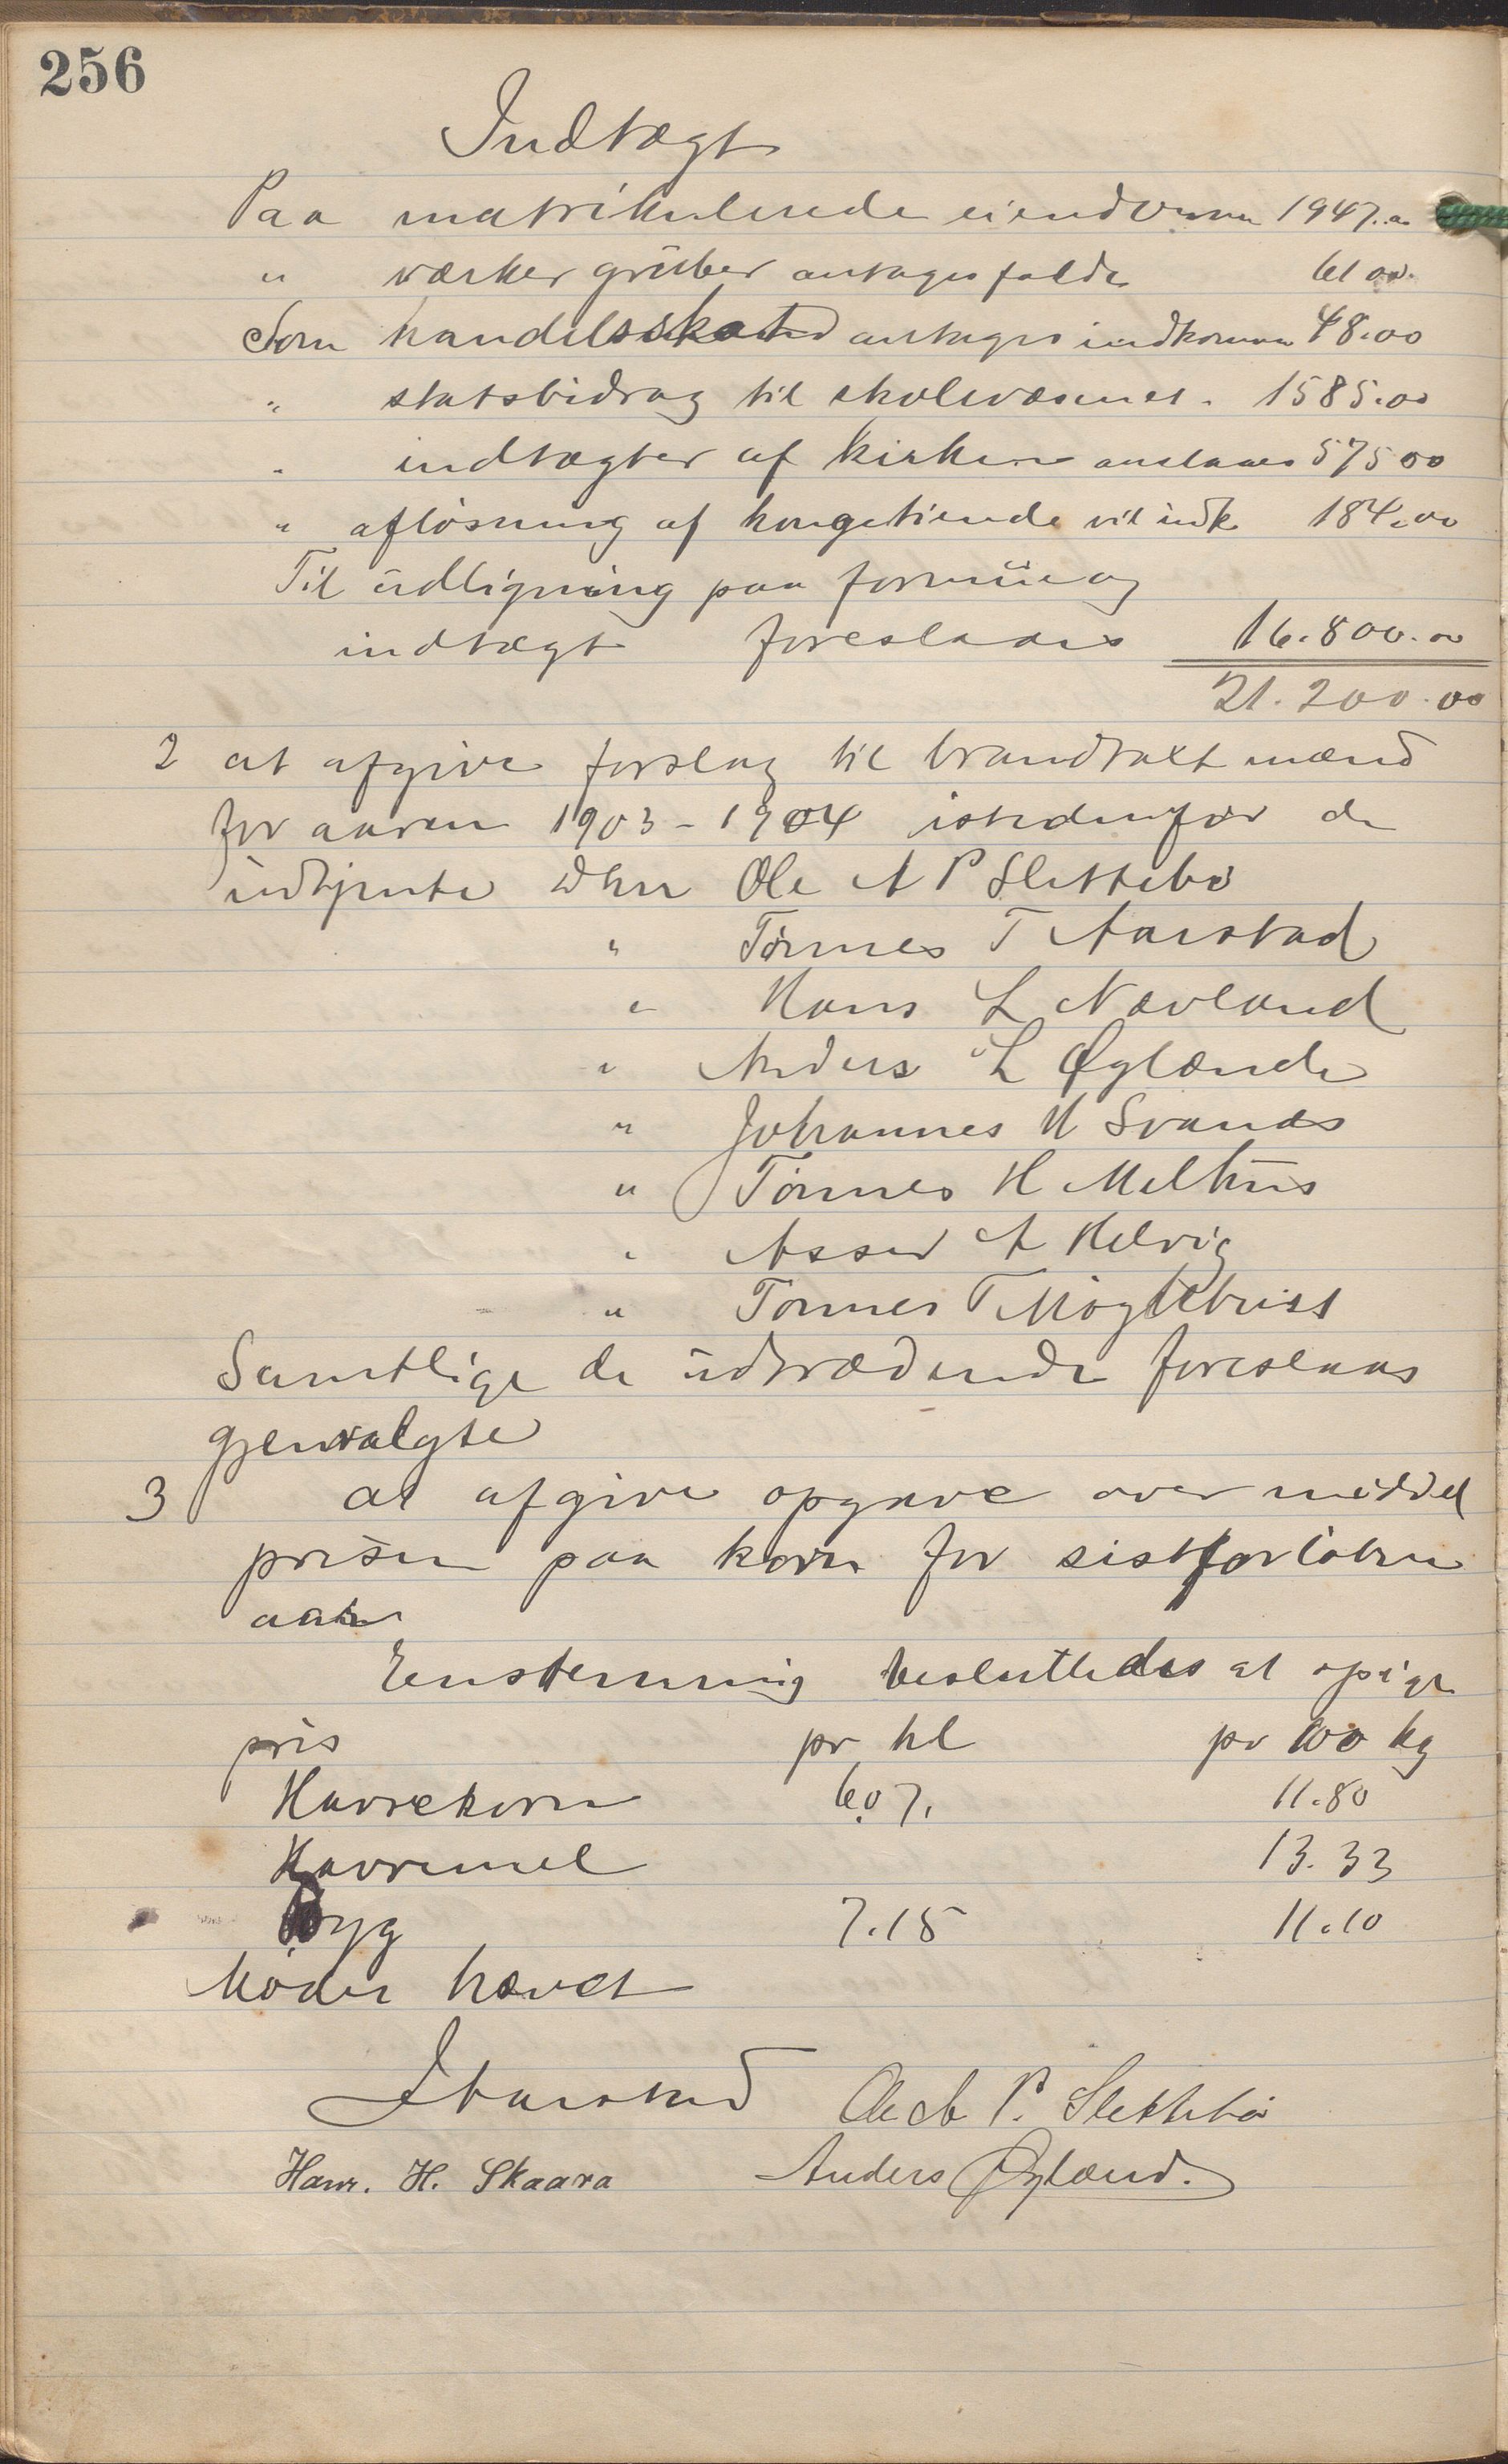 256
Indtægt
Paa matrikulerede eiendomme 1947.00
" værker grüber antages falde 61 00
Som handelsskat antages indkomme 48.00
" statsbidrag til skolevæsenet. 1585.00
" indtægter af kirken anslaaes 575 00
" afløsning af kongetiende vil indk 184.00
Til üdligning paa formüe og
indtægt foreslaaes 16.800.00
21.200.00
2 at afgive forslag til brandtakt mænd
for aaren 1903-1904 istedenfor de
üdtjente Dhrr Ole A P Slettebø
" Tønnes T Aarstad
" Hans L Nævland
" Anders L Øglænde
" Johannes H Svanes
" Tønnes H Melhüs
" Asser A Helvig
" Tønnes T Møgletvist
Samtlige de üdtrædende foreslaaes
gjenvalgte
3 at afgive opgave over middel
prisen paa korn for sistforløbne
aar
Enstemmig besluttedes at opgive
pris pr hl pr 100 kg
Havrekorn 6.07. 11.80
Havremel 13.33
Byg 7.15 11.10
Mødet hævet
Aarstad Ole A P. Slettebø
Hans. H. Skaara Anders Øglænd.